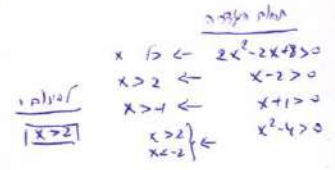 תחום הגדרה
כל x ← 2x²-2x+8>0
x>2 ← x-2>0
x>-1 ← x+1>0
x>2
x<-2 } ← x²-4>0
לסיכום:
x>2